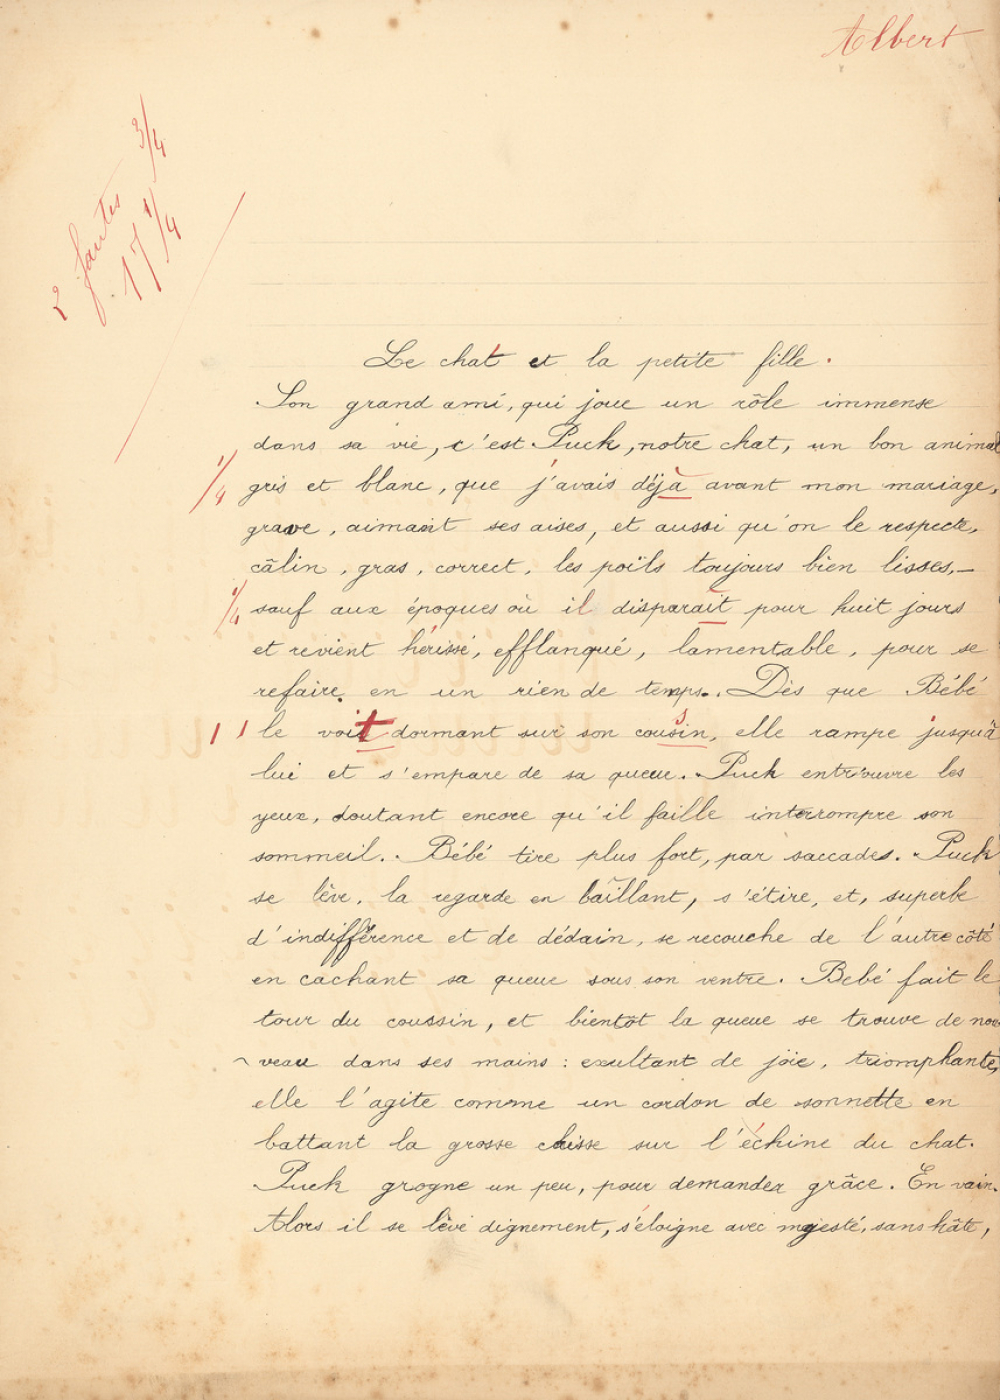 Albert
2 fautes 3/4
17 1/4
Le chat et la petite fille.
Son grand ami, qui joue un rôle immense
dans sa vie, c'est Puck, notre chat, un bon animal
1/4 gris et blanc, que j'avais déjà avant mon mariage,
grave, aimant ses aises, et aussi qu'on le respecte,
câlin, gras, correct, les poils toujours bien lisses,—
1/4 sauf aux époques où il disparaît pour huit jours
et revient hérissé, efflanqué, lamentable, pour se
refaire en un rien de temps. Dès que Bébé
1 1 le voit dormant sur son coussin, elle rampe jusqu'à
lui et s'empare de sa queue. Puck entr'ouvre les
yeux, doutant encore qu'il faille interrompre son
sommeil. Bébé tire plus fort, par saccades. Puck
se lève, la regarde en bâillant, s'étire, et, superbe
d'indifférence et de dédain, se recouche de l'autre côté
en cachant sa queue sous son ventre. Bebé fait le
tour du coussin, et bientôt la queue se trouve de nou
veau dans ses mains : exultant de joie, triomphante,
elle l'agite comme un cordon de sonnette en
battant la grosse caisse sur l'échine du chat.
Puck grogne un peu, pour demander grâce. En vain.
Alors il se lève dignement, s'éloigne avec majesté, sans hâte,